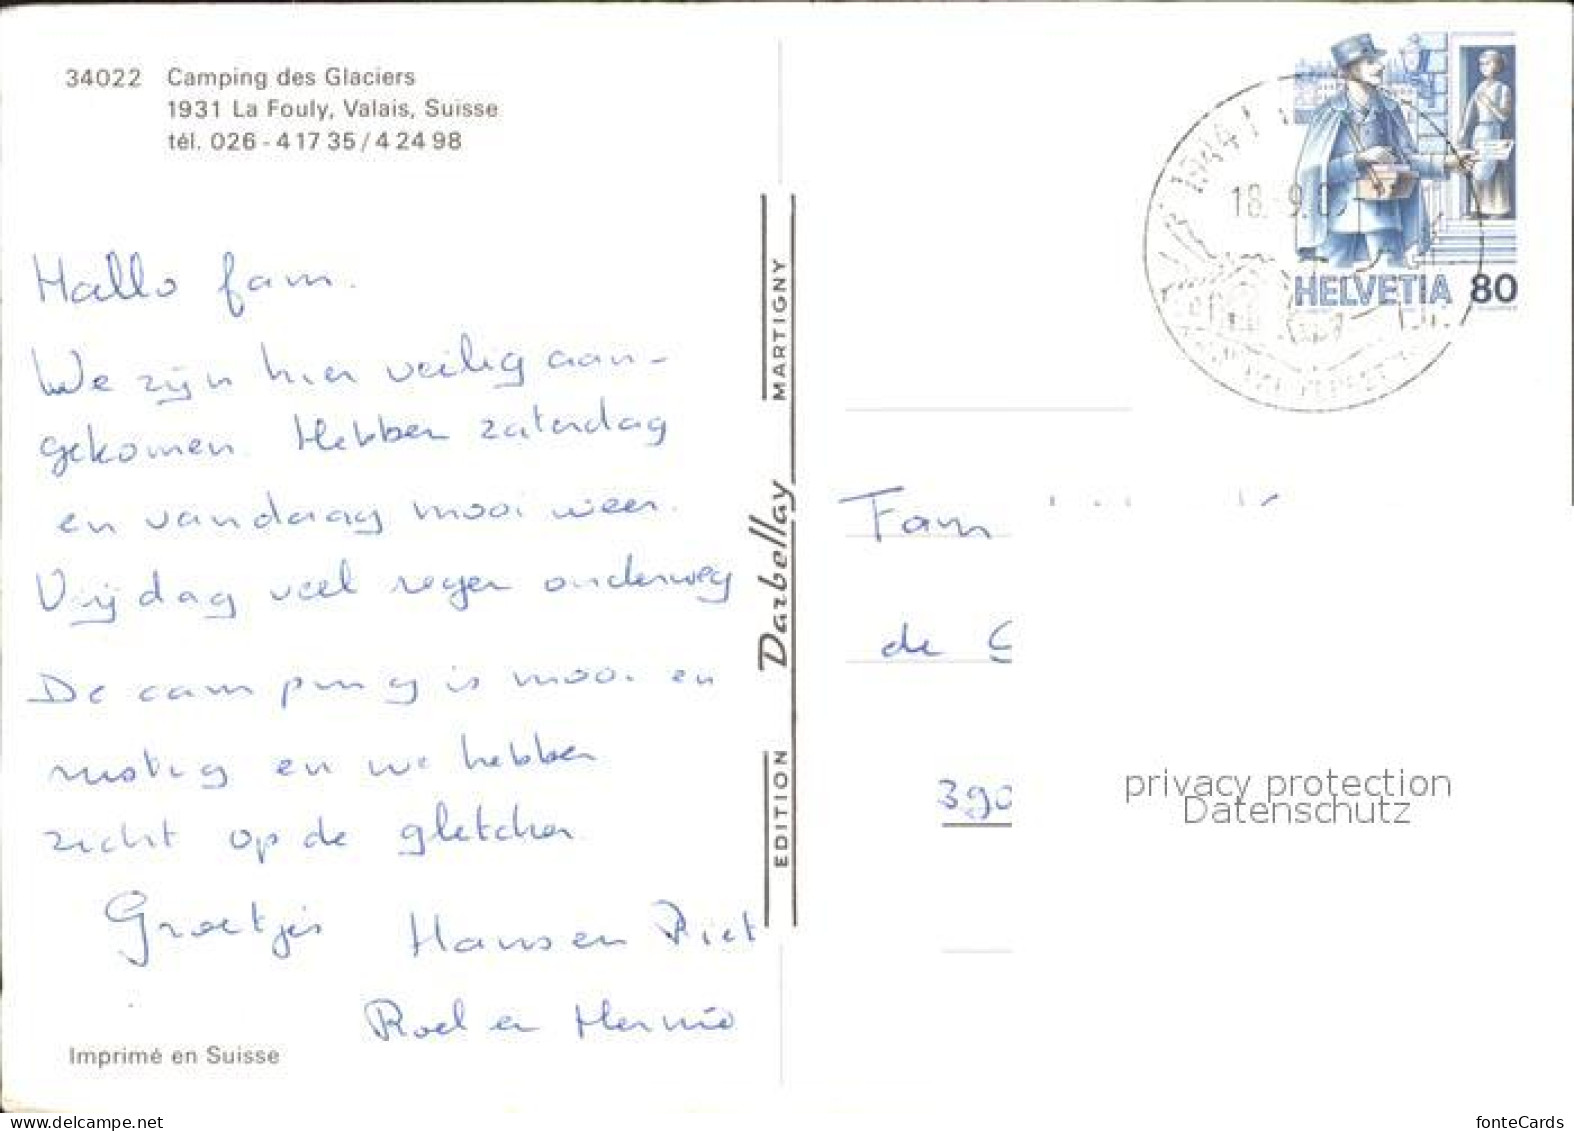 34022 Camping des Glaciers
1931 La Fouly, Valais, Suisse
tél. 026 - 4 17 35 / 4 24 98
Hallo fam.
We zijn hier veilig aan-
gekomen. Hebben zaterdag
en vandaag mooi weer.
Vrijdag veel regen onderweg
De camping is mooi en
rustig en we hebben
zicht op de gletcher
Groetjes Hans en Piet
Roel en Hermie
Imprimé en Suisse
EDITION Darbellay MARTIGNY
18.-9.
HELVETIA 80
Fam
de
390
privacy protection
Datenschutz
www.delcampe.net
fonteCards